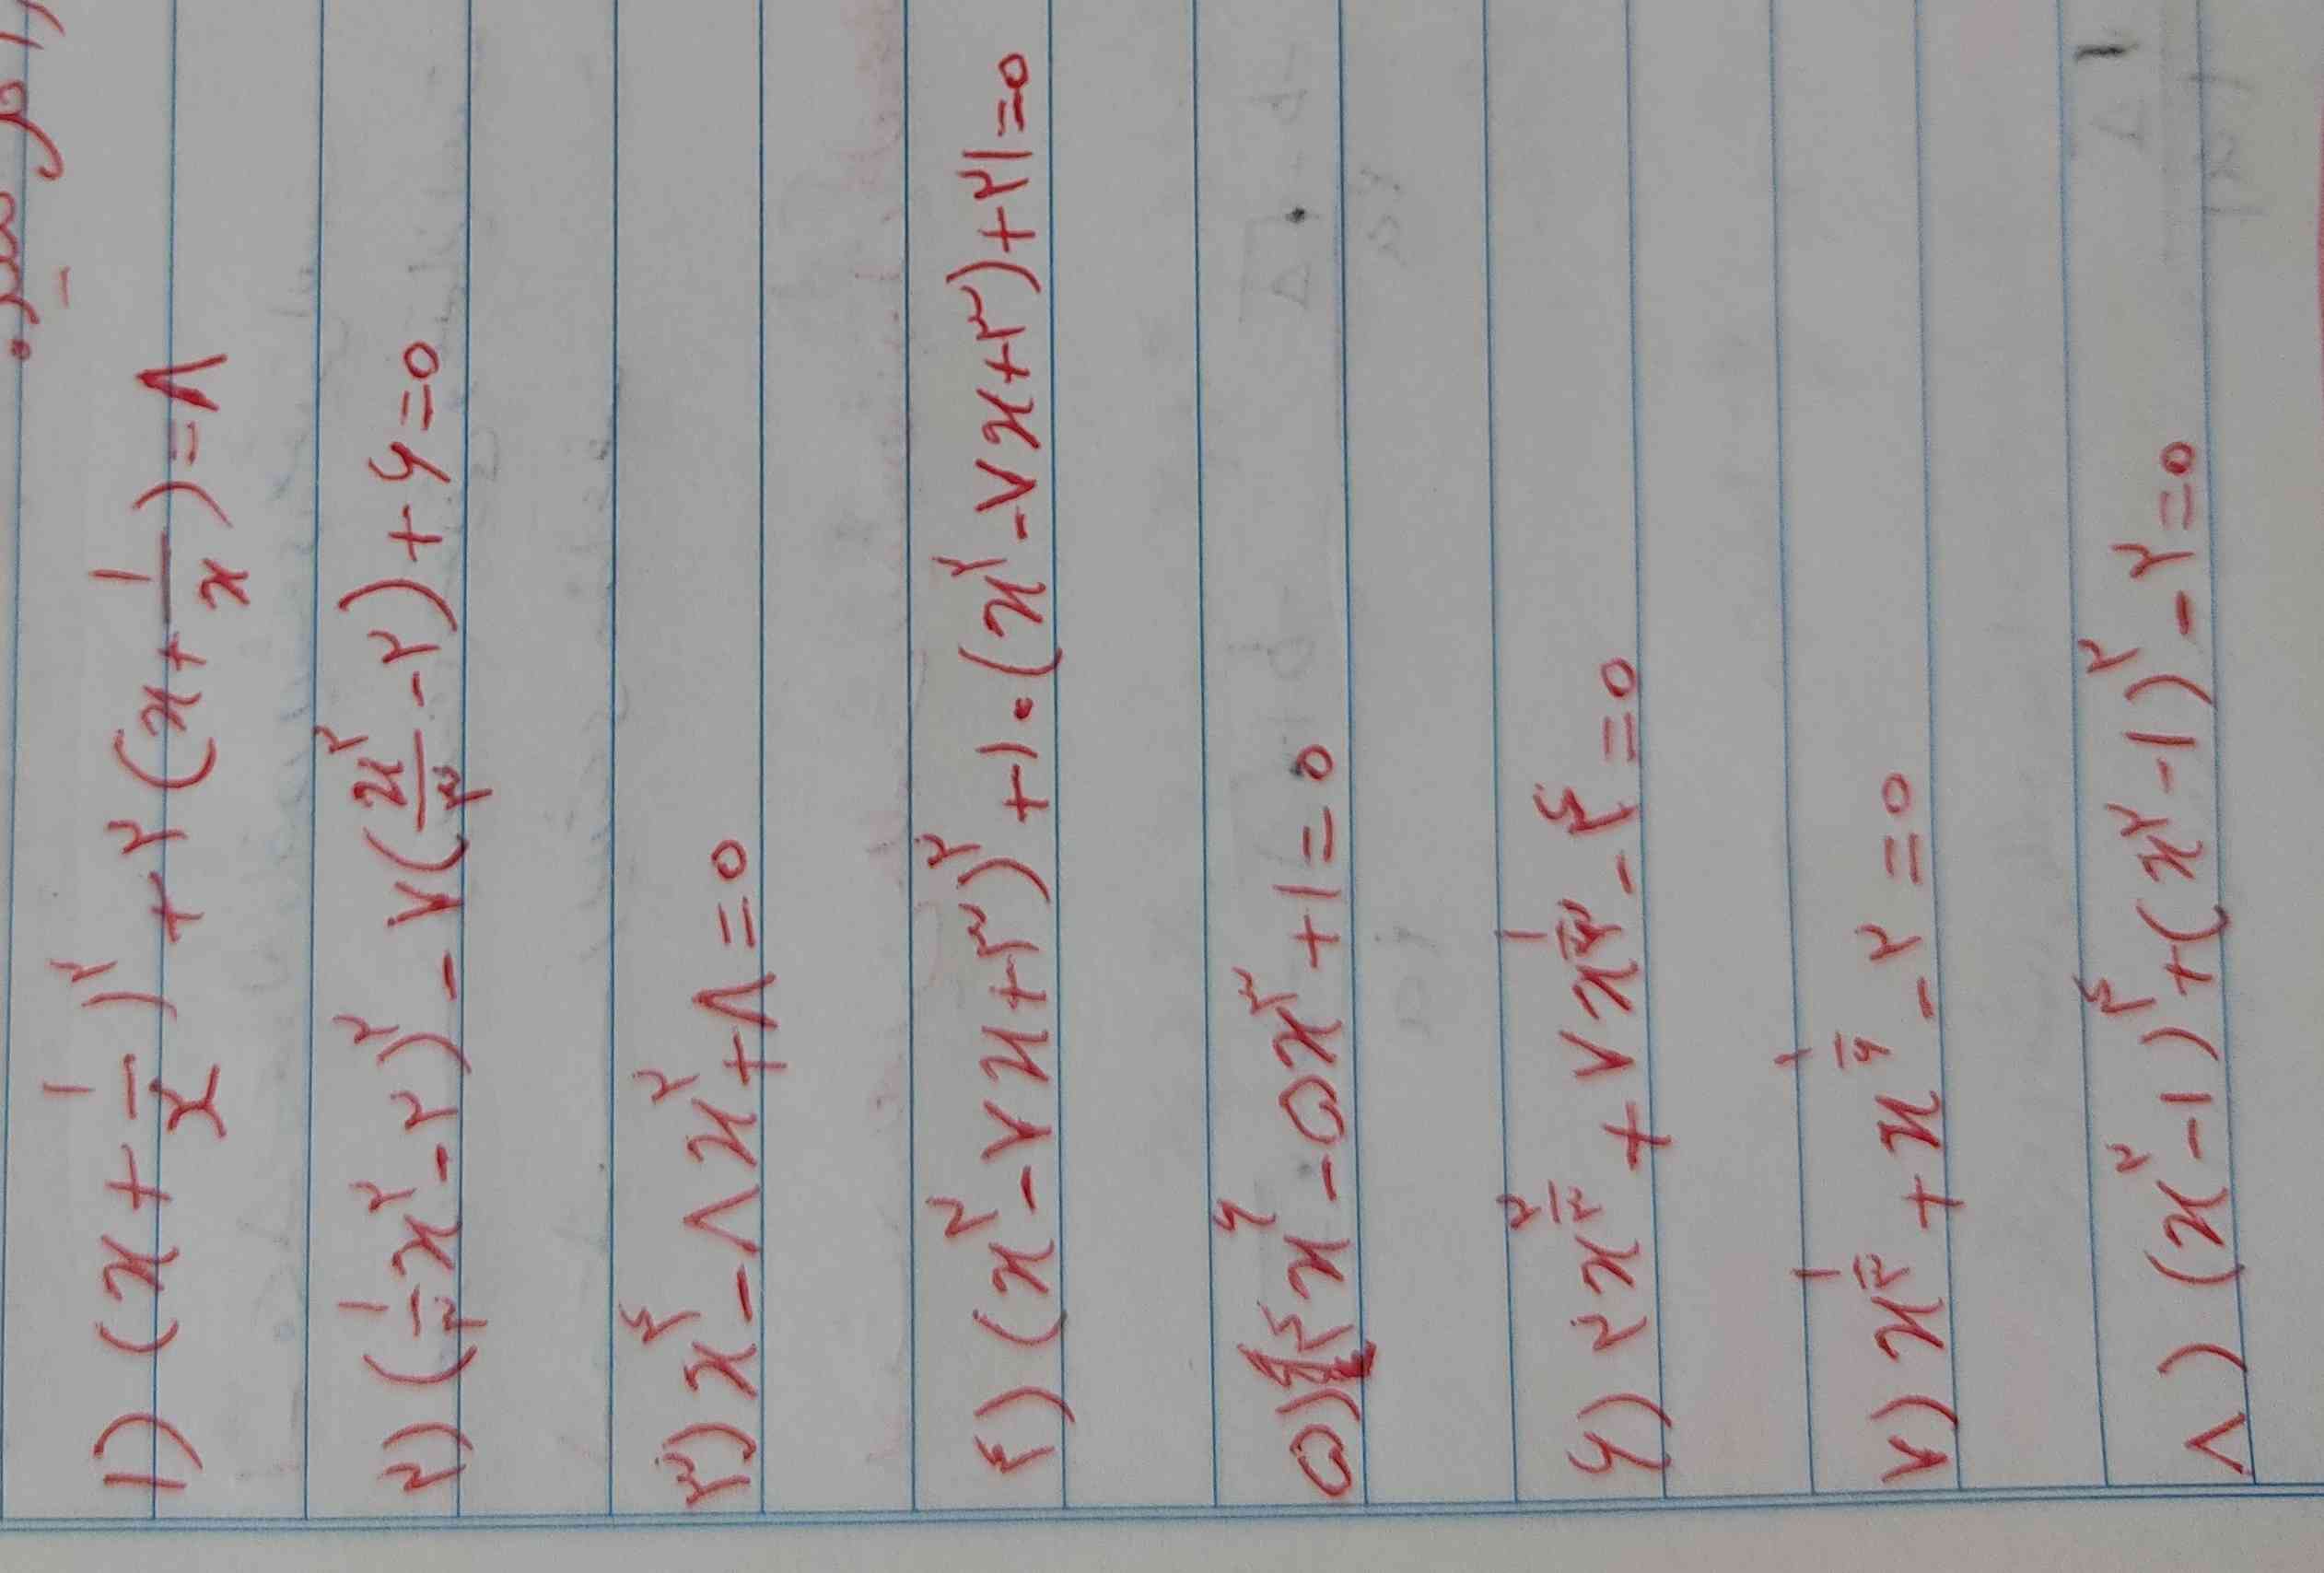 ۱) (x + ۱/x)^۲ + ۲(x + ۱/x) = ۸
۲) (۱/۳ x^۲ - ۲)^۲ - ۷(x^۲/۳ - ۲) + ۶ = ۰
۳) x^۴ - ۸x^۲ + ۸ = ۰
۴) (x^۲ - ۷x + ۳)^۲ + ۱۰(x^۲ - ۷x + ۳) + ۲۱ = ۰
۵) ۴x^۶ - ۵x^۳ + ۱ = ۰
۶) ۲x^(۲/۳) + ۷x^(۱/۳) - ۴ = ۰
۷) x^(۱/۳) + x^(۱/۶) - ۲ = ۰
۸) (x^۲ - ۱)^۴ + (x^۲ - ۱)^۲ - ۲ = ۰